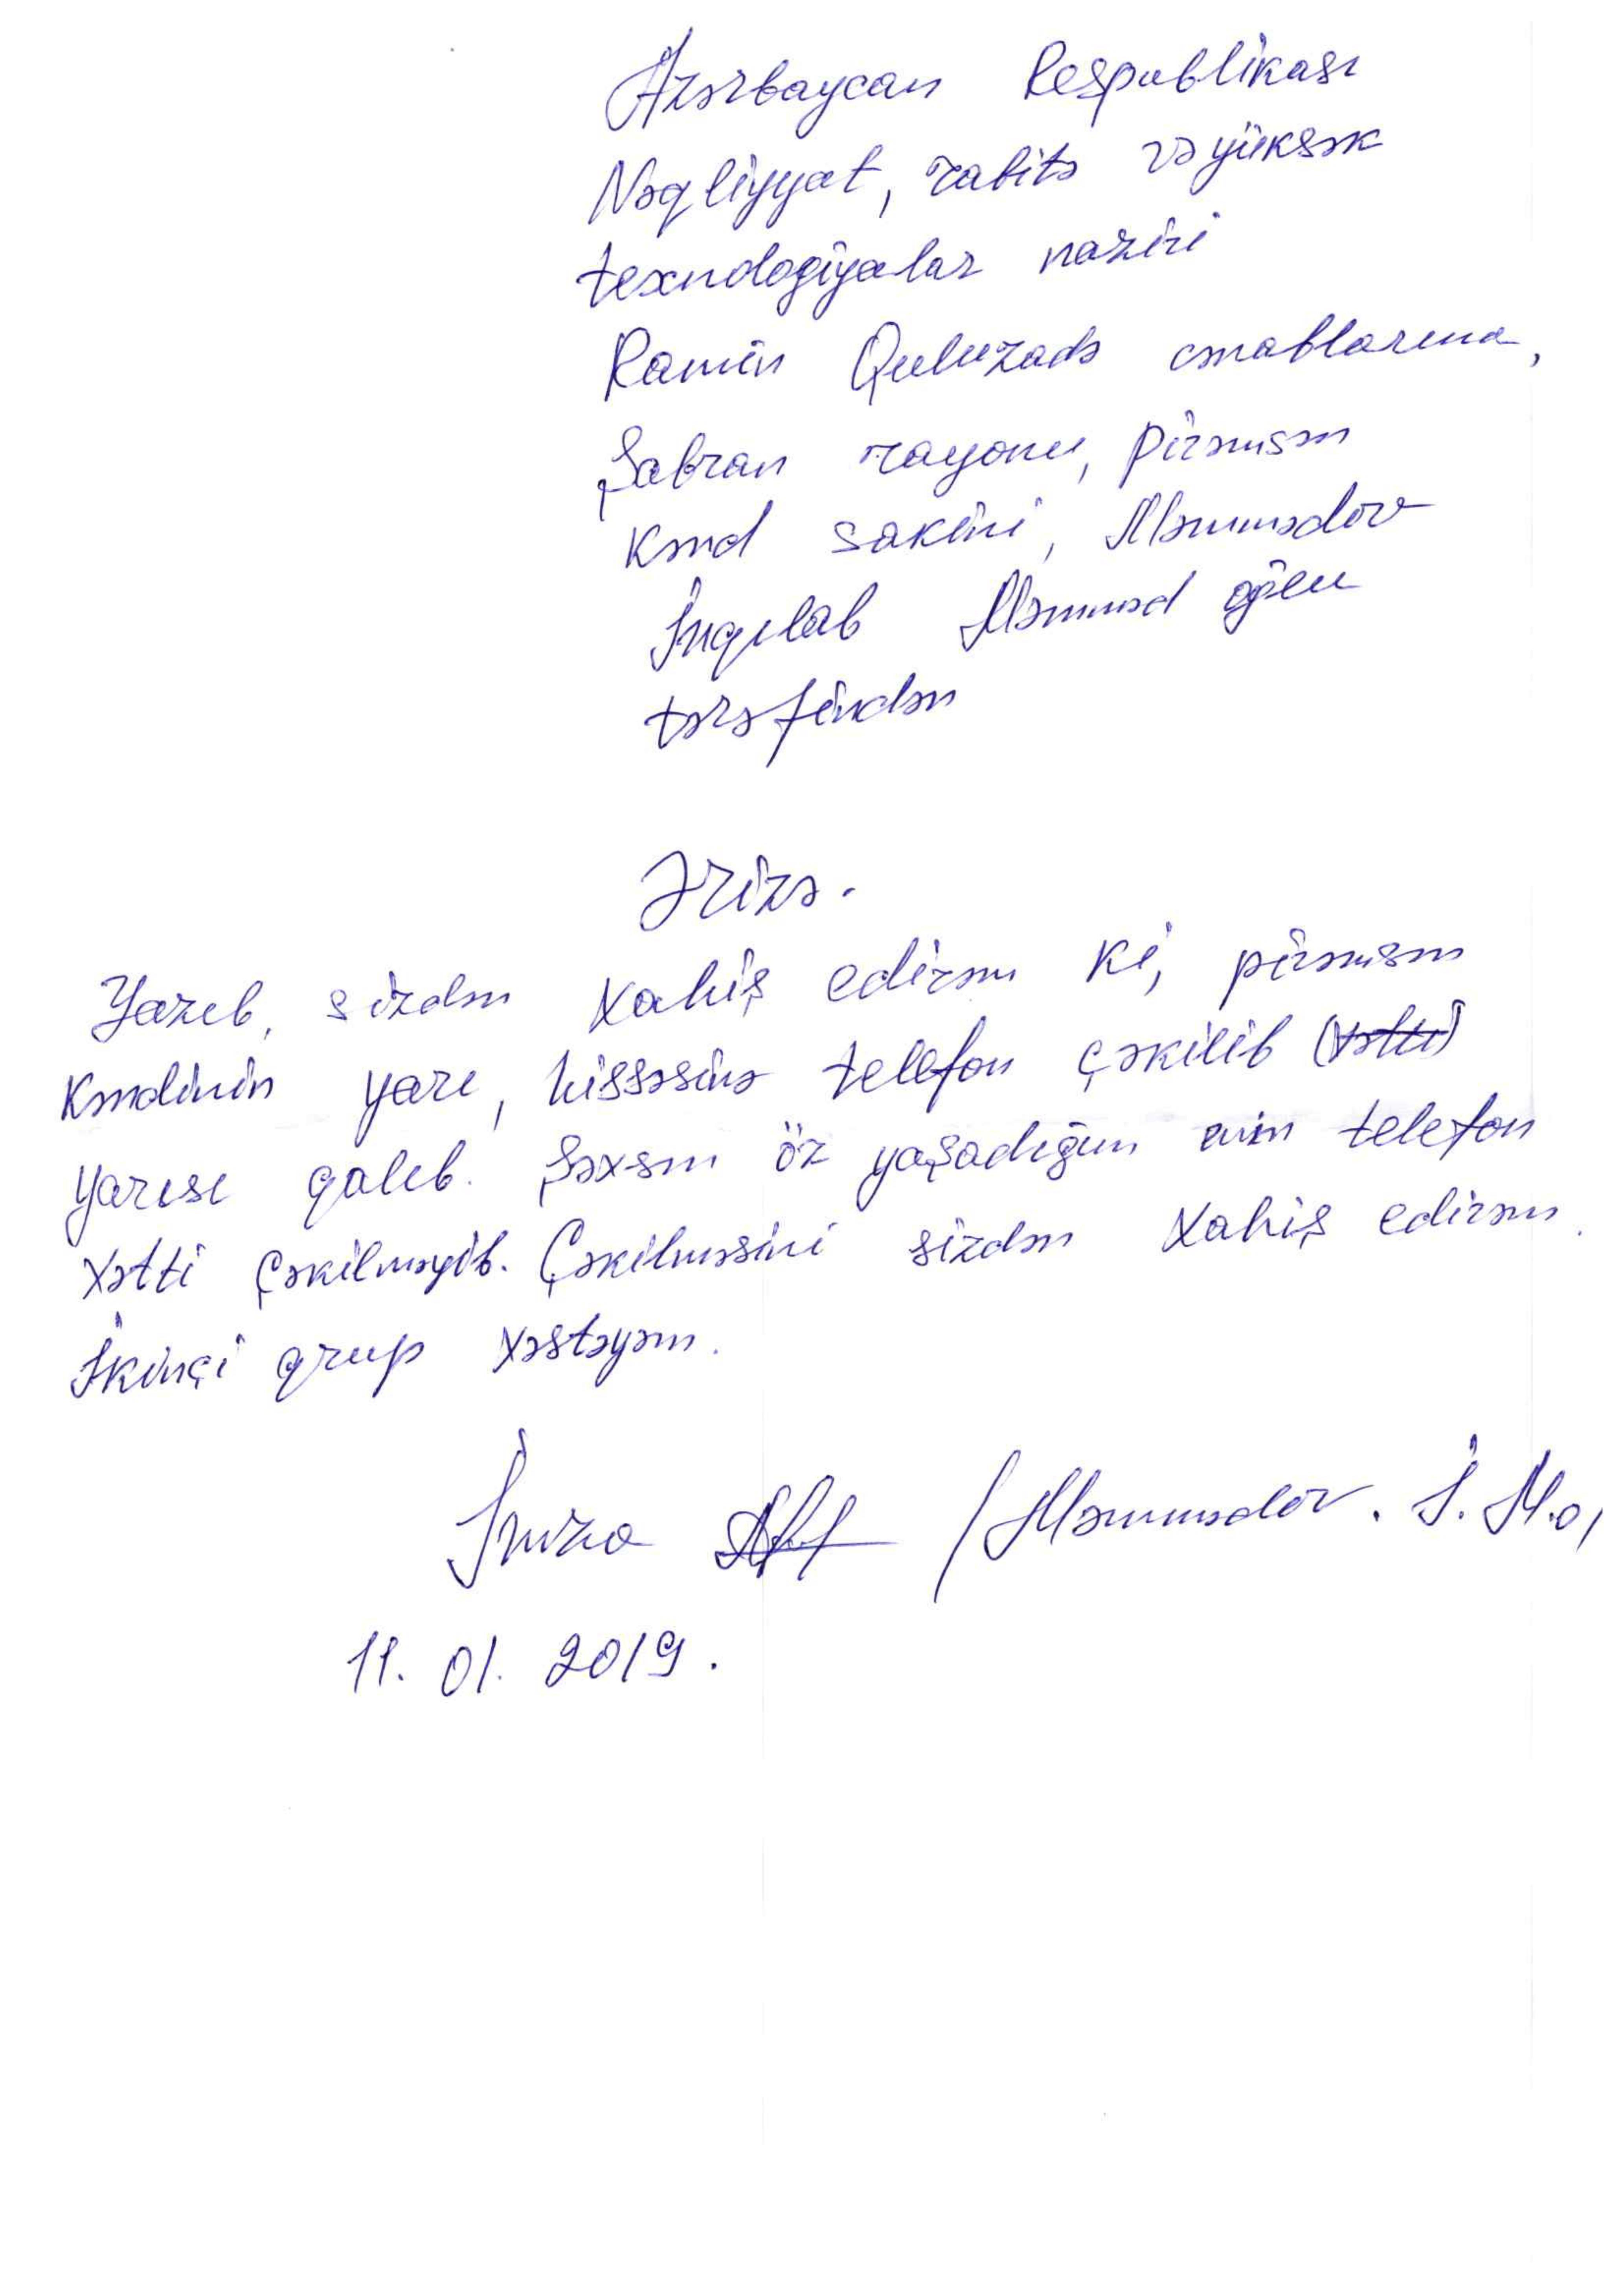 Azərbaycan Respublikası
Nəqliyyat, rabitə və yüksək
texnologiyalar naziri
Ramin Quluzadə cənablarına,
Şabran rayonu, Pirəmsən
kənd sakini, Məmmədov
İnqılab Məmməd oğlu
tərəfindən
Ərizə.
Yazıb, sizdən xahiş edirəm ki, pirəmsən
kəndinin yarı, hissəsinə telefon çəkilib (xətti)
yarısı qalıb. Şəxsən öz yaşadığım evin telefon
xətti çəkilməyib. Çəkilməsini sizdən xahiş edirəm.
İkinçi qrup xəstəyəm.
İmza /Məmmədov. İ. M.o/
11. 01. 2019.